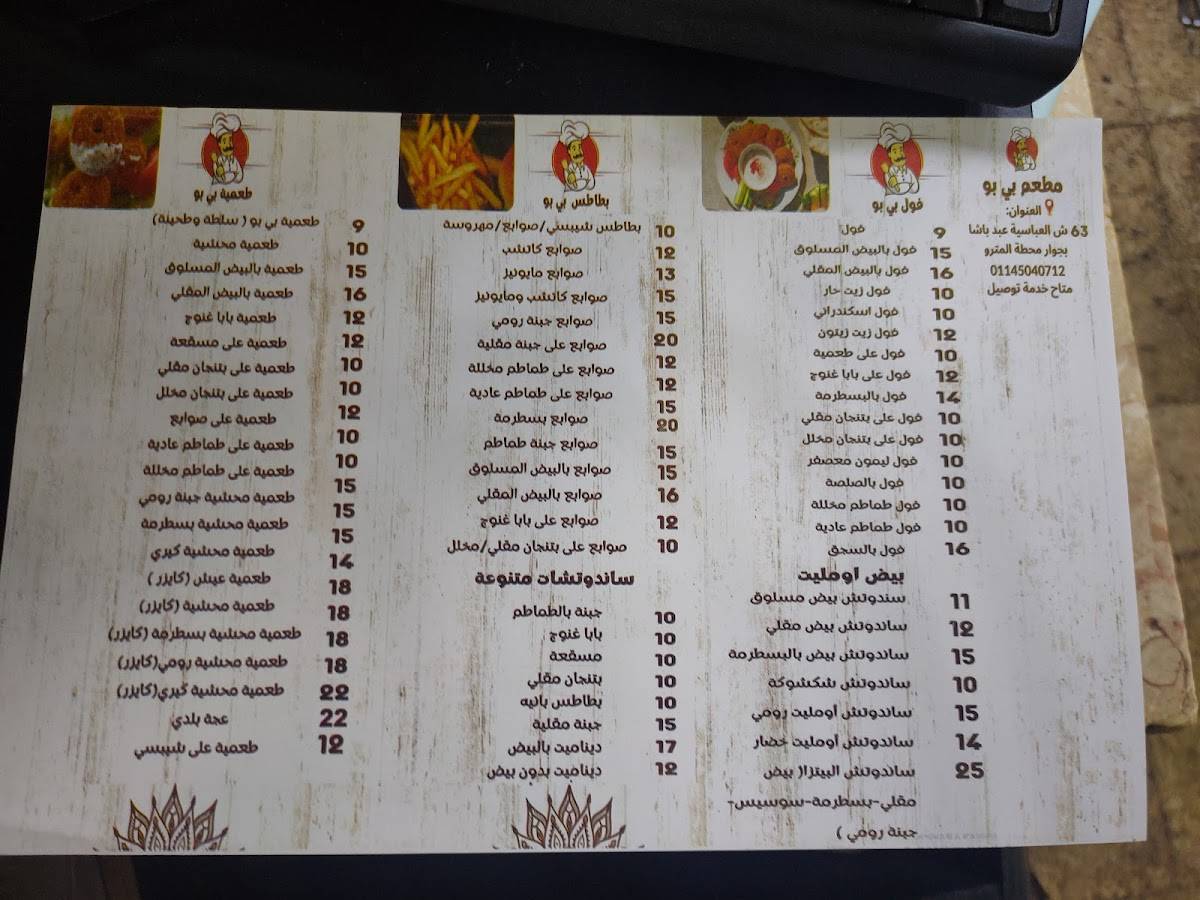 مطعم بي بو
العنوان:
63 ش العباسية عبد باشا
بجوار محطة المترو
01145040712
متاح خدمة توصيل
فول بي بو
فول 9
فول بالبيض المسلوق 15
فول بالبيض المقلي 16
فول زيت حار 10
فول اسكندراني 10
فول زيت زيتون 12
فول على طعمية 10
فول على بابا غنوج 12
فول بالبسطرمة 14
فول على بتنجان مقلي 10
فول على بتنجان مخلل 10
فول ليمون معصفر 10
فول بالصلصة 10
فول طماطم مخللة 10
فول طماطم عادية 10
فول بالسجق 16
بيض اومليت
سندوتش بيض مسلوق 11
ساندوتش بيض مقلي 12
ساندوتش بيض بالبسطرمة 15
ساندوتش شكشوكة 10
ساندوتش أومليت رومي 15
ساندوتش أومليت خضار 14
ساندوتش البيتزا( بيض 25
مقلي-بسطرمة-سوسيس-
جبنة رومي )
بطاطس بي بو
بطاطس شيبسي/صوابع/مهروسة 10
صوابع كاتشب 12
صوابع مايونيز 13
صوابع كاتشب ومايونيز 15
صوابع جبنة رومي 15
صوابع على جبنة مقلية 20
صوابع على طماطم مخللة 12
صوابع على طماطم عادية 12
صوابع بسطرمة 15
صوابع جبنة طماطم 20
صوابع بالبيض المسلوق 15
صوابع بالبيض المقلي 15
صوابع على بابا غنوج 16
صوابع على بتنجان مقلي/مخلل 12
10
ساندوتشات متنوعة
جبنة بالطماطم 10
بابا غنوج 10
مسقعة 10
بتنجان مقلي 10
بطاطس بانيه 10
جبنة مقلية 15
ديناميت بالبيض 17
ديناميت بدون بيض 12
طعمية بي بو
طعمية بي بو ( سلطة وطحينة) 9
طعمية محشية 10
طعمية بالبيض المسلوق 15
طعمية بالبيض المقلي 16
طعمية بابا غنوج 12
طعمية على مسقعة 12
طعمية على بتنجان مقلي 10
طعمية على بتنجان مخلل 10
طعمية على صوابع 12
طعمية على طماطم عادية 10
طعمية على طماطم مخللة 10
طعمية محشية جبنة رومي 15
طعمية محشية بسطرمة 15
طعمية محشية كيري 15
طعمية عيش (كايزر ) 14
طعمية محشية (كايزر) 18
طعمية محشية بسطرمة (كايزر) 18
طعمية محشية رومي(كايزر) 18
طعمية محشية كيري(كايزر) 18
عجة بلدي 22
طعمية على شيبسي 22
12